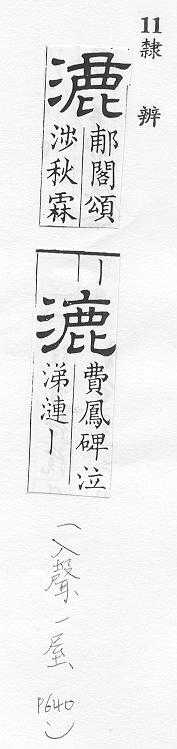 11 隸辨
漉
郙閣頌
涉秋霖
丨丨
漉
費鳳碑泣
涕漣丨
(入聲一屋 P640)